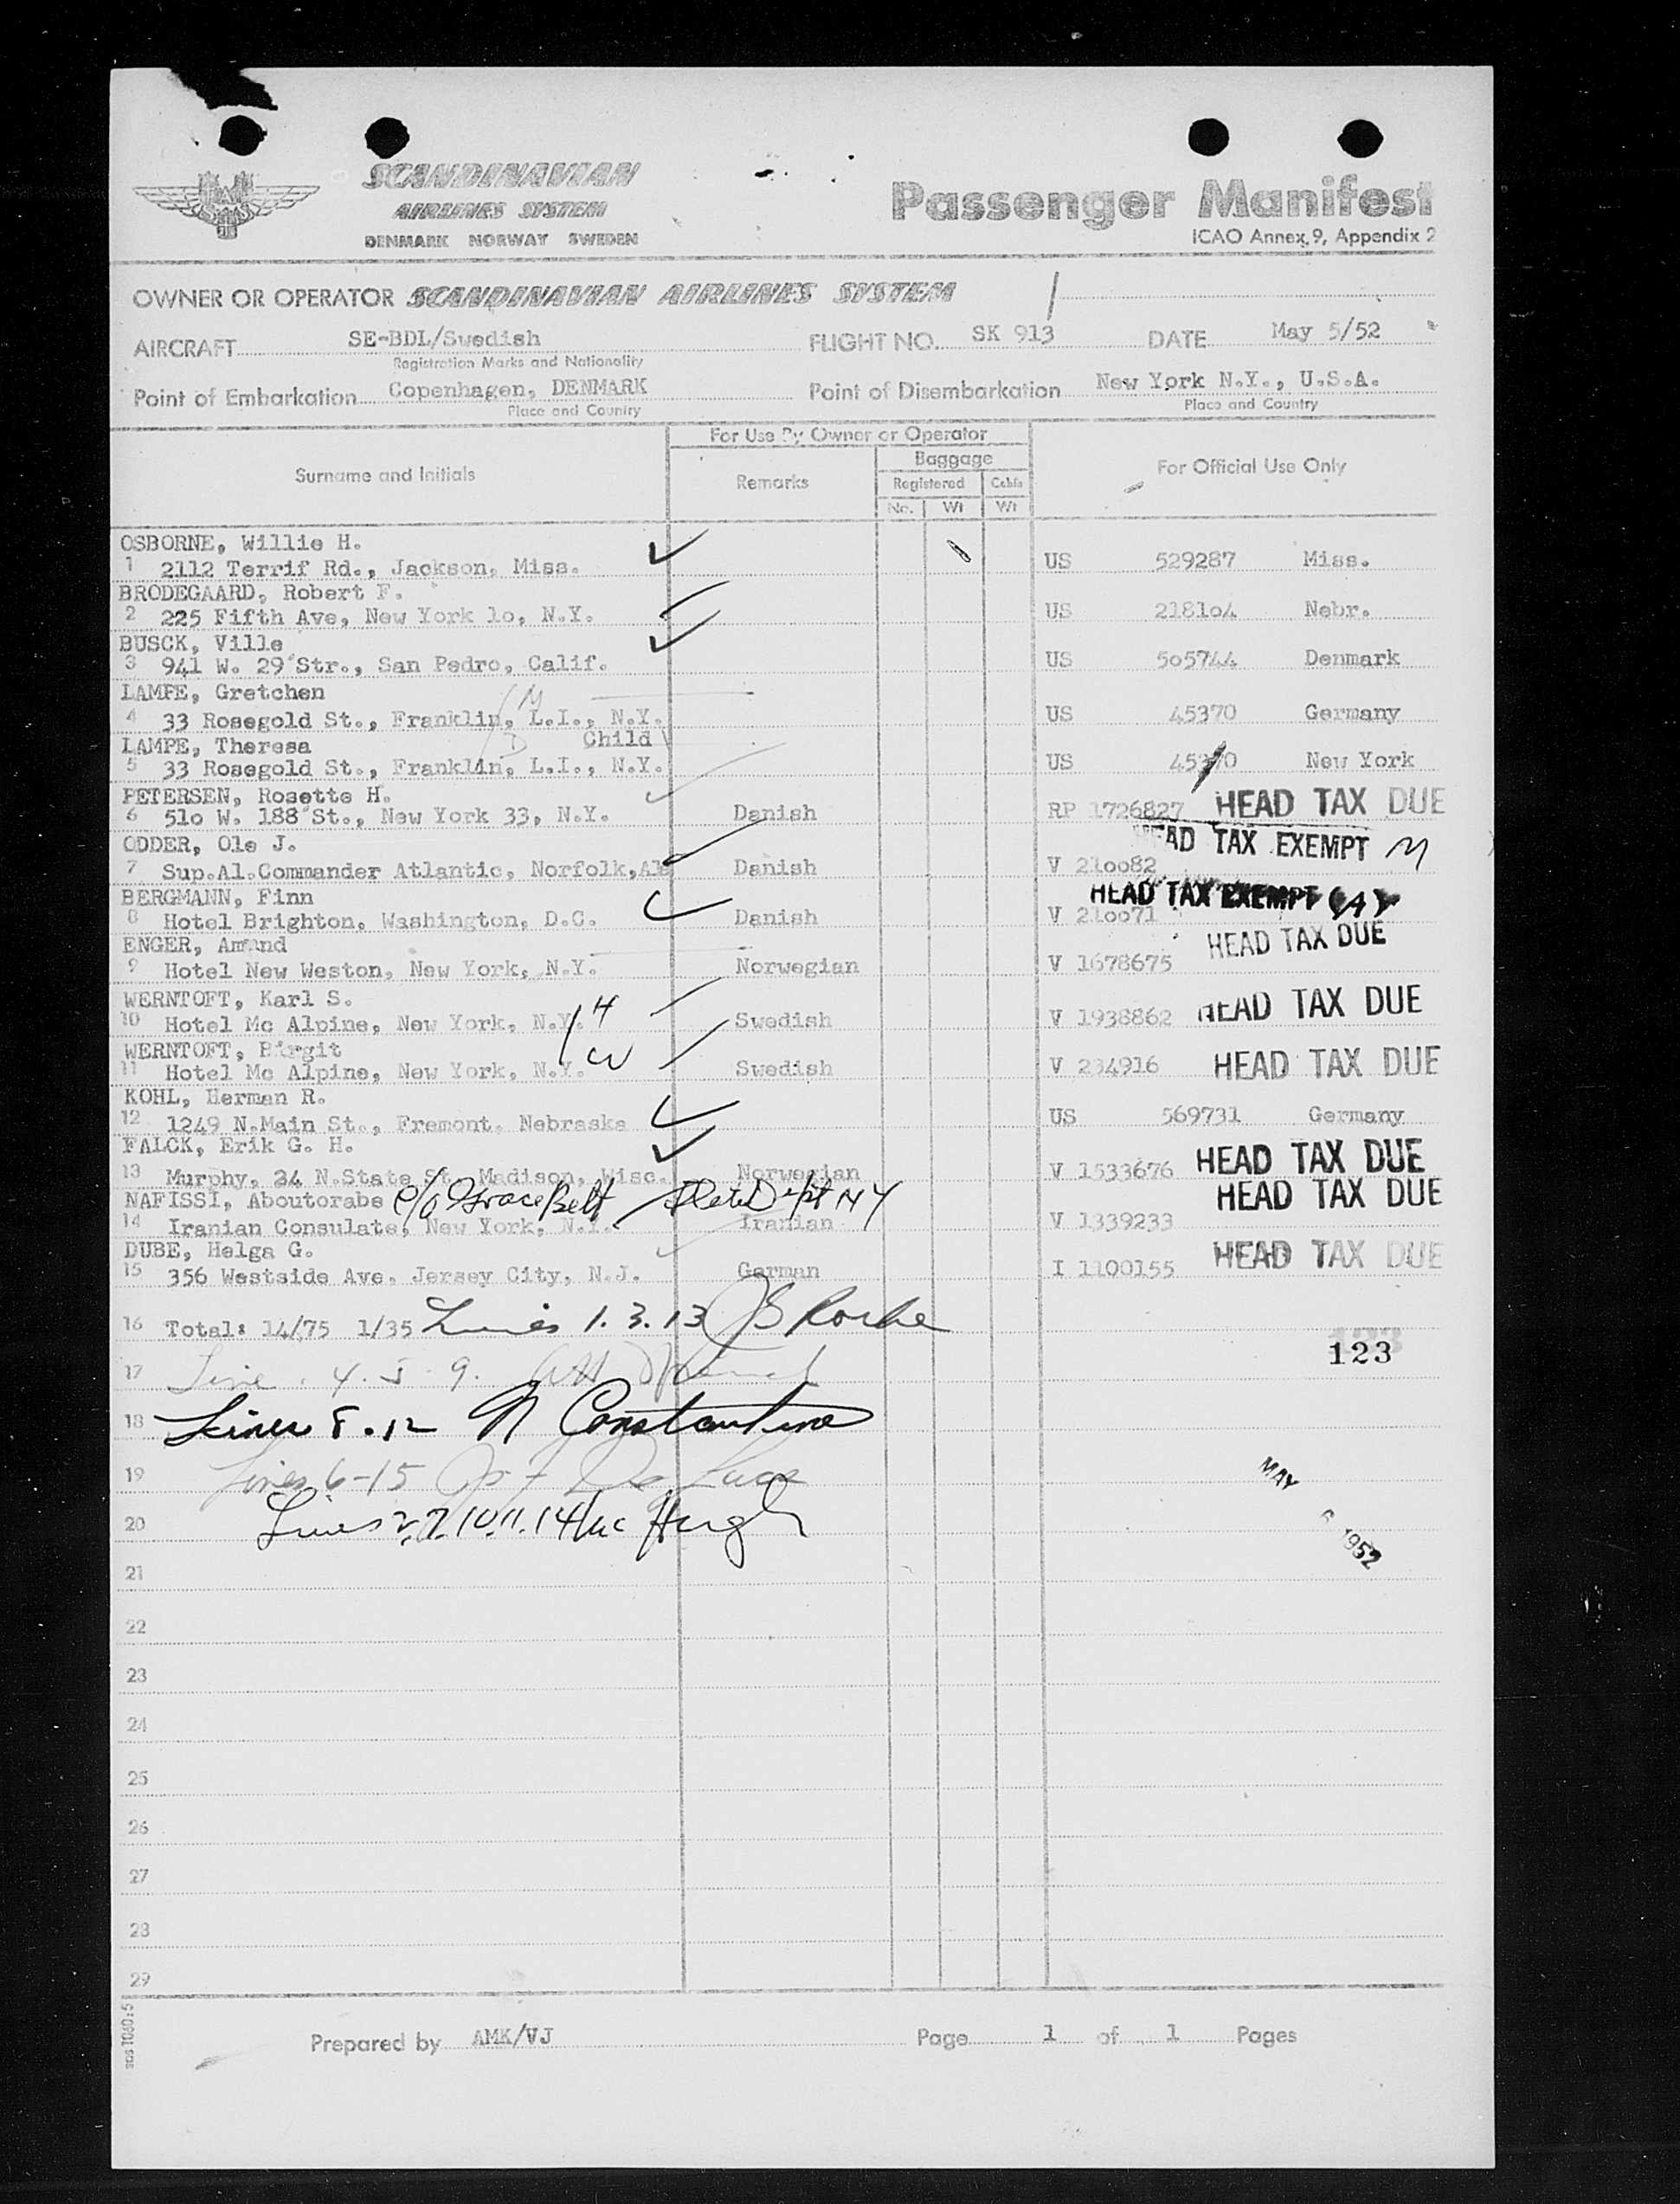 SCANDINAVIAN
AIRLINES SYSTEM
DENMARK NORWAY SWEDEN
Passenger Manifest
ICAO Annex 9, Appendix 2
OWNER OR OPERATOR SCANDINAVIAN AIRLINES SYSTEM
AIRCRAFT SE-BDL/Swedish FLIGHT NO. SK 913 DATE May 5/52
Registration Marks and Nationality
Point of Embarkation Copenhagen, DENMARK Point of Disembarkation New York N.Y., U.S.A.
Place and Country Place and Country
For Use By Owner or Operator
Surname and Initials Remarks Baggage For Official Use Only
Registered Cabin
No. Wt Wt
OSBORNE, Willie H.
1 2112 Terrif Rd., Jackson, Miss. US 529287 Miss.
BRODEGAARD, Robert F.
2 225 Fifth Ave, New York 1o, N.Y. US 2181o4 Nebr.
BUSCK, Ville
3 941 W. 29 Str., San Pedro, Calif. US 5o5744 Denmark
LAMPE, Gretchen M
4 33 Rosegold St., Franklin, L.I., N.Y. US 45370 Germany
LAMPE, Theresa D Child
5 33 Rosegold St., Franklin, L.I., N.Y. US 45370 New York
PETERSEN, Rosette H.
6 51o W. 188 St., New York 33, N.Y. Danish RP 1726827 HEAD TAX DUE
ODDER, Ole J. HEAD TAX EXEMPT
7 Sup.Al.Commander Atlantic, Norfolk, Danish V 21oo82
BERGMANN, Finn HEAD TAX EXEMPT
8 Hotel Brighton, Washington, D.C. Danish V 21oo71
ENGER, Amand HEAD TAX DUE
9 Hotel New Weston, New York, N.Y. Norwegian V 1678675
WERNTOFT, Karl S. H
10 Hotel Mc Alpine, New York, N.Y. Swedish V 1938862 HEAD TAX DUE
WERNTOFT, Birgit W
11 Hotel Mc Alpine, New York, N.Y. Swedish V 234916 HEAD TAX DUE
KOHL, Herman R.
12 1249 N.Main St., Fremont, Nebraska US 569731 Germany
FALCK, Erik G. H.
13 Murphy, 24 N.State St. Madison, Wisc. Norwegian V 1533676 HEAD TAX DUE
NAFISSI, Aboutorabe c/o Grace Belt State Dept NY HEAD TAX DUE
14 Iranian Consulate, New York, N.Y. Iranian V 1339233
DUBE, Helga G.
15 356 Westside Ave. Jersey City, N.J. German I 1100155 HEAD TAX DUE
16 Total: 14/75 1/35 Lines 1. 3. 13 JS Roche
123
17 Line 4. 5 9.
18 Lines 8. 12 N Constantine
19 Lines 6-15 De Luca
MAY 1952
20 Lines 2,7,10,11.14 McHugh
21
22
23
24
25
26
27
28
29
sas 1060:5
Prepared by AMK/VJ Page 1 of 1 Pages